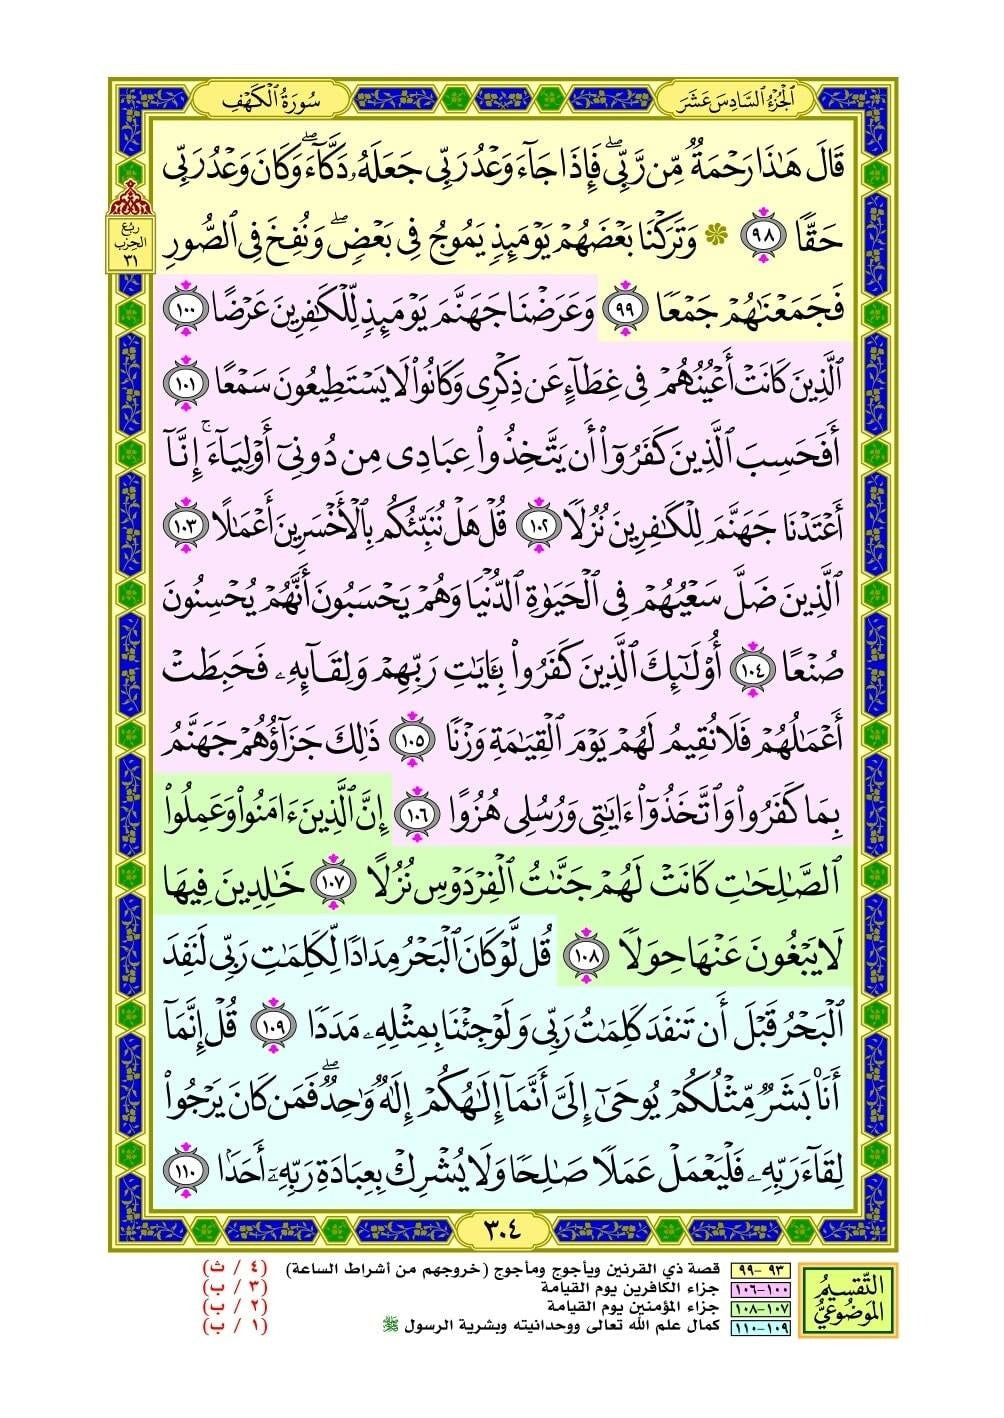 الجُزْءُ السَّادِسَ عَشَرَ
سُورَةُ الْكَهْفِ
قَالَ هَٰذَا رَحْمَةٌ مِّن رَّبِّي ۖ فَإِذَا جَآءَ وَعْدُ رَبِّي جَعَلَهُۥ دَكَّآءَ ۖ وَكَانَ وَعْدُ رَبِّي
حَقًّا ٩٨ ۞ وَتَرَكْنَا بَعْضَهُمْ يَوْمَئِذٍ يَمُوجُ فِي بَعْضٍ ۖ وَنُفِخَ فِي ٱلصُّورِ
ربع
الحزب
٣١
فَجَمَعْنَٰهُمْ جَمْعًا ٩٩ وَعَرَضْنَا جَهَنَّمَ يَوْمَئِذٍ لِّلْكَٰفِرِينَ عَرْضًا ١٠٠
ٱلَّذِينَ كَانَتْ أَعْيُنُهُمْ فِي غِطَآءٍ عَن ذِكْرِي وَكَانُوا۟ لَا يَسْتَطِيعُونَ سَمْعًا ١٠١
أَفَحَسِبَ ٱلَّذِينَ كَفَرُوٓا۟ أَن يَتَّخِذُوا۟ عِبَادِي مِن دُونِيٓ أَوْلِيَآءَ ۚ إِنَّآ
أَعْتَدْنَا جَهَنَّمَ لِلْكَٰفِرِينَ نُزُلًا ١٠٢ قُلْ هَلْ نُنَبِّئُكُم بِٱلْأَخْسَرِينَ أَعْمَٰلًا ١٠٣
ٱلَّذِينَ ضَلَّ سَعْيُهُمْ فِي ٱلْحَيَوٰةِ ٱلدُّنْيَا وَهُمْ يَحْسَبُونَ أَنَّهُمْ يُحْسِنُونَ
صُنْعًا ١٠٤ أُو۟لَٰٓئِكَ ٱلَّذِينَ كَفَرُوا۟ بِـَٔايَٰتِ رَبِّهِمْ وَلِقَآئِهِۦ فَحَبِطَتْ
أَعْمَٰلُهُمْ فَلَا نُقِيمُ لَهُمْ يَوْمَ ٱلْقِيَٰمَةِ وَزْنًا ١٠٥ ذَٰلِكَ جَزَآؤُهُمْ جَهَنَّمُ
بِمَا كَفَرُوا۟ وَٱتَّخَذُوٓا۟ ءَايَٰتِي وَرُسُلِي هُزُوًا ١٠٦ إِنَّ ٱلَّذِينَ ءَامَنُوا۟ وَعَمِلُوا۟
ٱلصَّٰلِحَٰتِ كَانَتْ لَهُمْ جَنَّٰتُ ٱلْفِرْدَوْسِ نُزُلًا ١٠٧ خَٰلِدِينَ فِيهَا
لَا يَبْغُونَ عَنْهَا حِوَلًا ١٠٨ قُل لَّوْ كَانَ ٱلْبَحْرُ مِدَادًا لِّكَلِمَٰتِ رَبِّي لَنَفِدَ
ٱلْبَحْرُ قَبْلَ أَن تَنفَدَ كَلِمَٰتُ رَبِّي وَلَوْ جِئْنَا بِمِثْلِهِۦ مَدَدًا ١٠٩ قُلْ إِنَّمَآ
أَنَا۠ بَشَرٌ مِّثْلُكُمْ يُوحَىٰٓ إِلَيَّ أَنَّمَآ إِلَٰهُكُمْ إِلَٰهٌ وَٰحِدٌ ۖ فَمَن كَانَ يَرْجُوا۟
لِقَآءَ رَبِّهِۦ فَلْيَعْمَلْ عَمَلًا صَٰلِحًا وَلَا يُشْرِكْ بِعِبَادَةِ رَبِّهِۦٓ أَحَدًۢا ١١٠
٣٠٤
التَّقْسِيمُ
المَوْضُوعِيُّ
٩٣-٩٩ قصة ذي القرنين ويأجوج ومأجوج (خروجهم من أشراط الساعة) (٤ / ث)
١٠٠-١٠٦ جزاء الكافرين يوم القيامة (٣ / ب)
١٠٧-١٠٨ جزاء المؤمنين يوم القيامة (٢ / ب)
١٠٩-١١٠ كمال علم الله تعالى ووحدانيته وبشرية الرسول ﷺ (١ / ب)